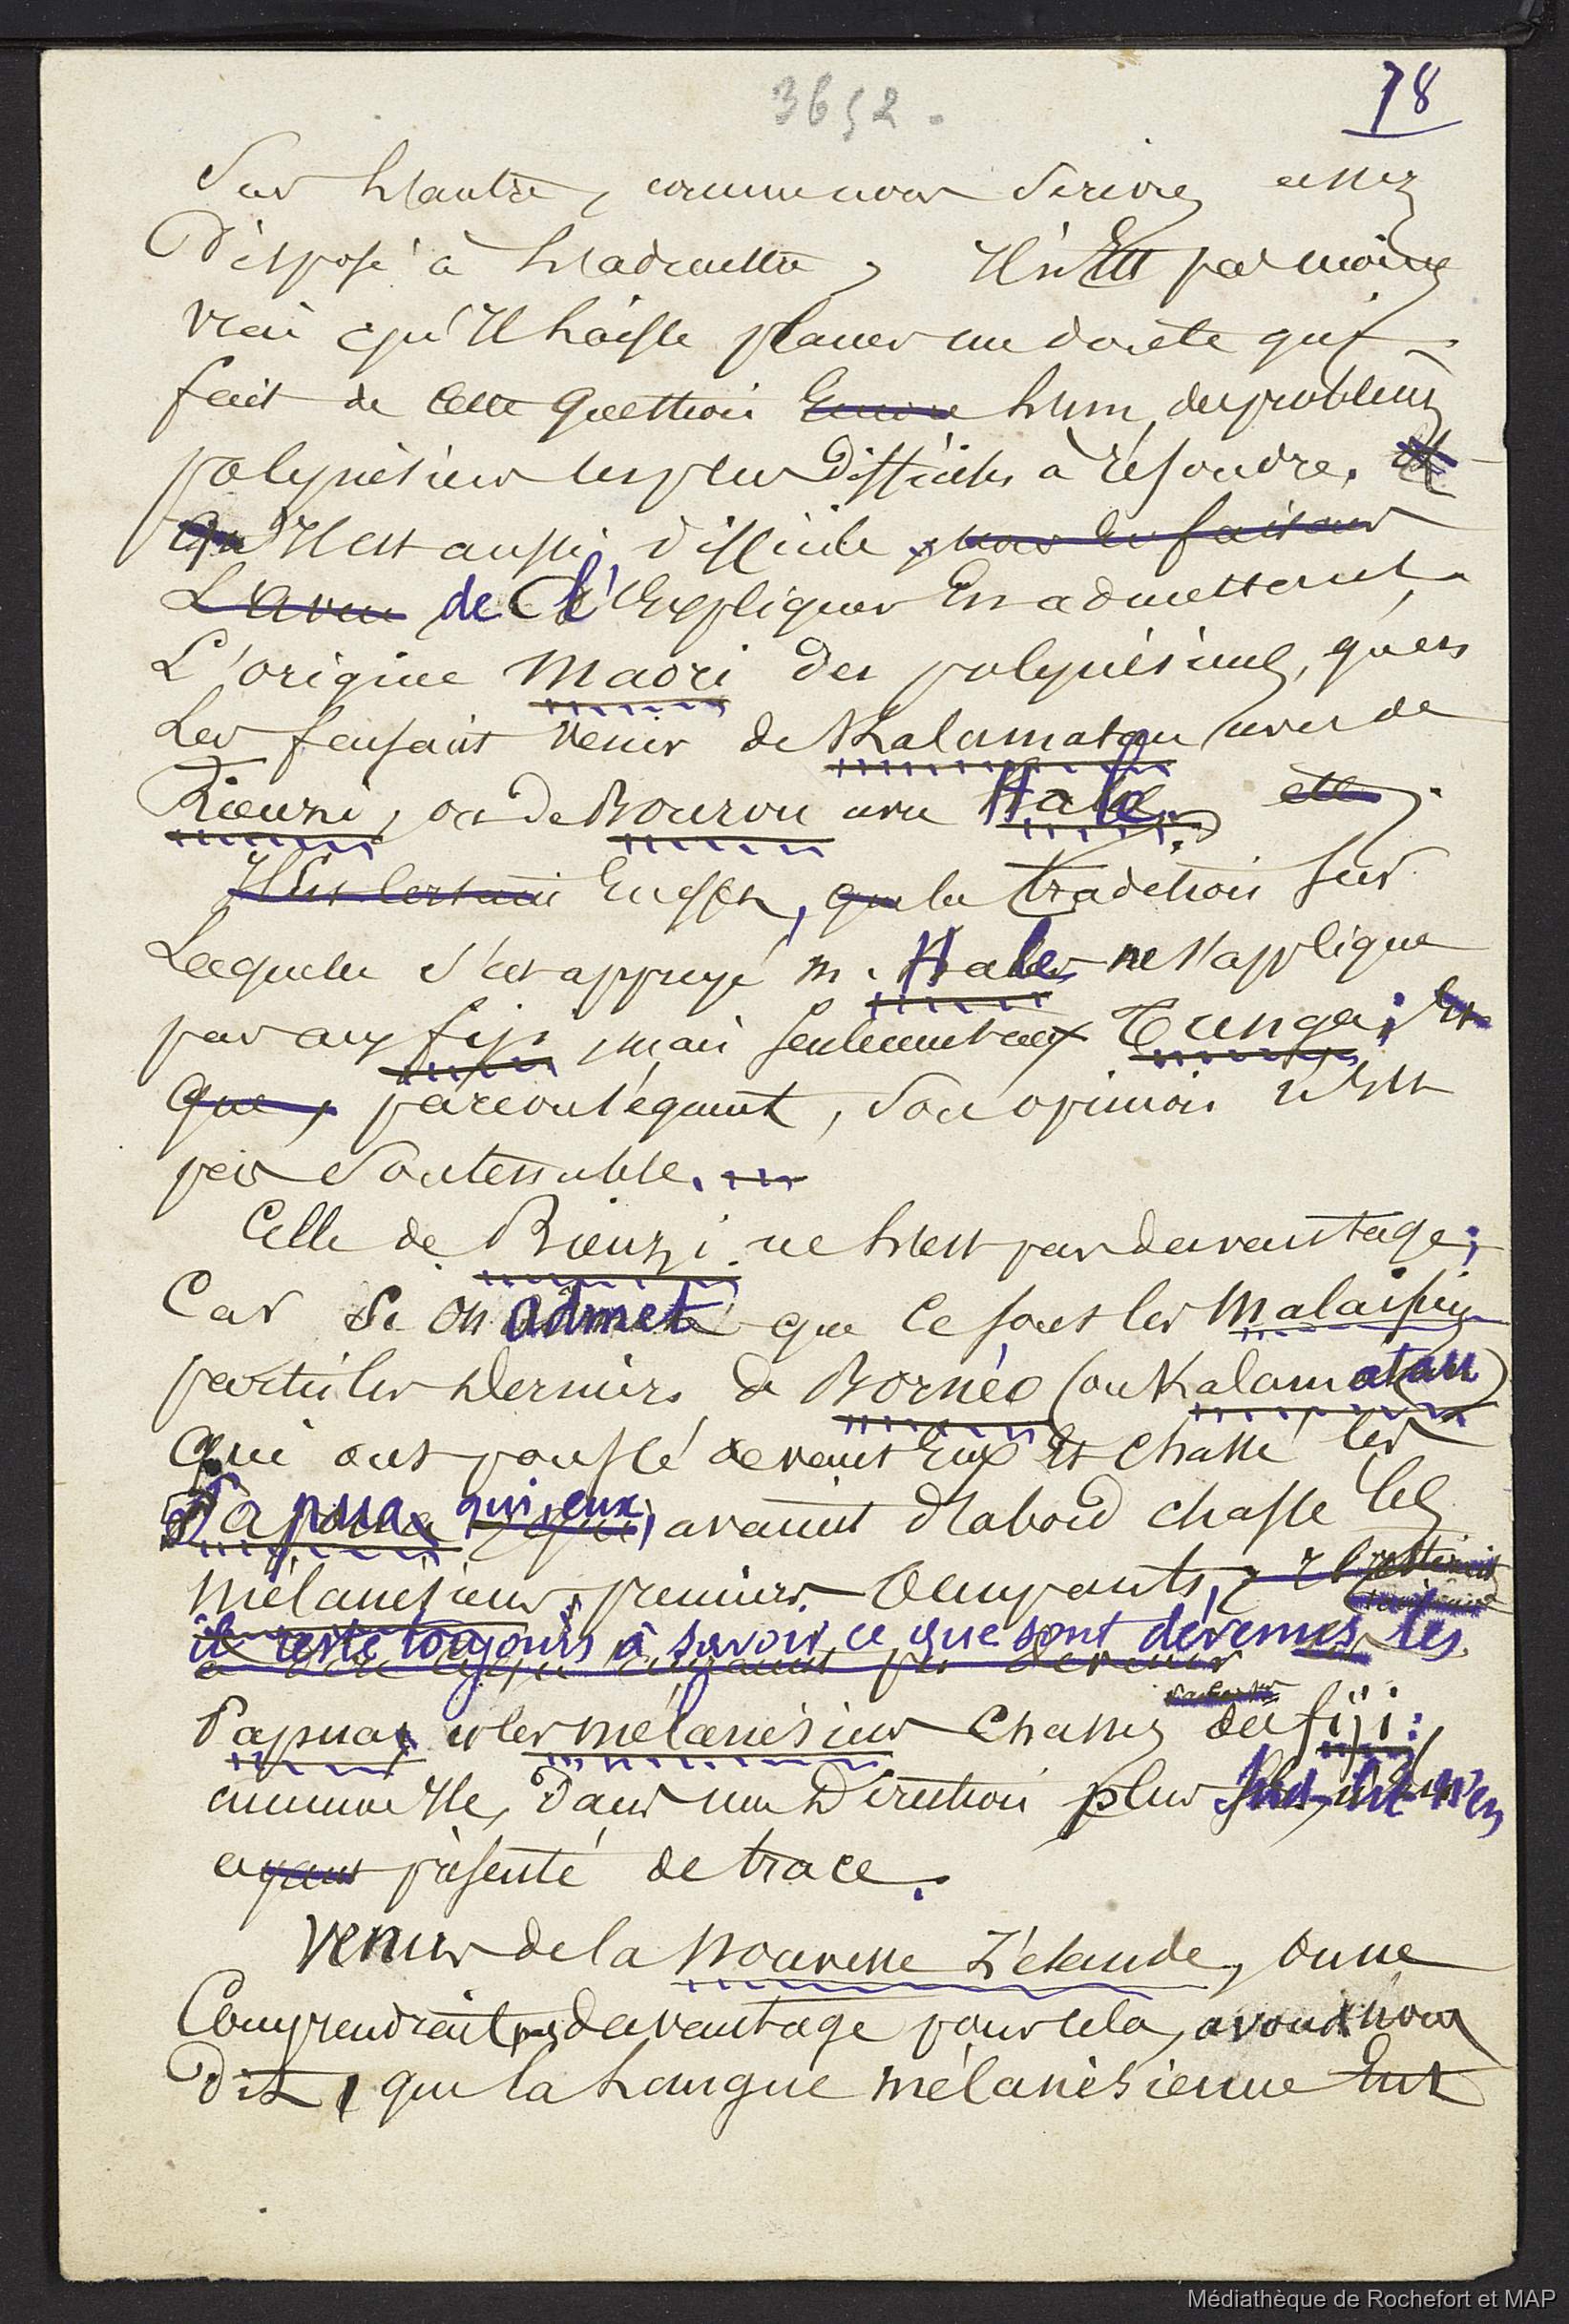 3652.
78
sur l'autre, comme nous serions assez
disposé à l'admettre, Il n'Est pas moins
vrai qu'Il laisse planer un doute qui
fait de cette question Encore l'un des problèmes
polynésiens les plus difficiles à résoudre. Et
qu'Il est aussi difficile, nous en faisons
L'aveu de l'Expliquer En admettant
L'origine Maori des polynésiens, qu'en
les faisant venir de Kalamatan avec de
Rienzi, ou de Bourou avec Hale.
Il Est certain En effet, que la tradition sur
Laquelle s'est appuyé M. Hale ne s'applique
pas aux fiji, mais seulement aux Tunga; Et
que, par conséquent, son opinion n'Est
pas soutenable.
Celle de Rienzi ne l'est pas davantage;
Car si on admet que ce sont les Malaisiens
partis les derniers de Bornéo (ou Kalamatan)
qui ont poussé devant Eux Et chassé les
Papua qui, eux, avaient d'abord chassé les
Mélanésiens, premiers occupants,
il reste toujours à savoir ce que sont devenus les
Papuas et les mélanésiens chassés des fiji:
aucune Ile, dans une direction plus Sud-Est n'en
ayant présenté de trace.
Venus de la Nouvelle Zélande, on ne
Comprendrait pas davantage pour cela, avons nous
dit, que la Langue mélanésienne Eut
Médiathèque de Rochefort et MAP